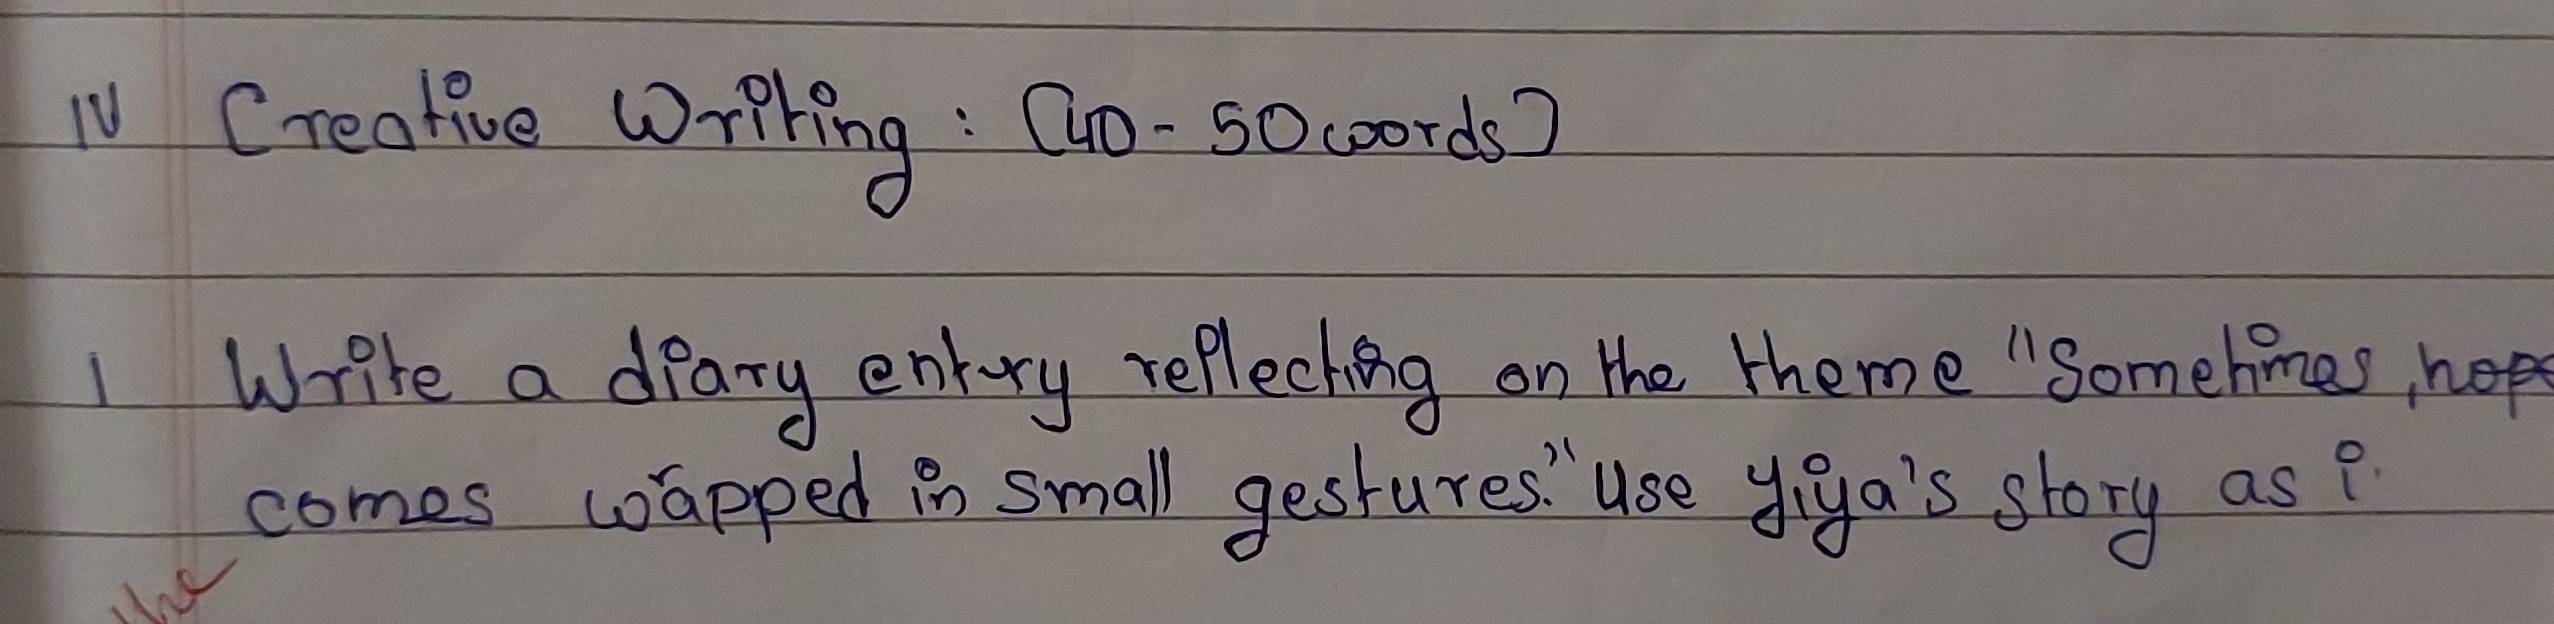 IV Creative Writing : (40 - 50 words)
1 Write a diary entry reflecting on the theme "Sometimes, hope
comes wrapped in small gestures." Use Yiya's story as i
the